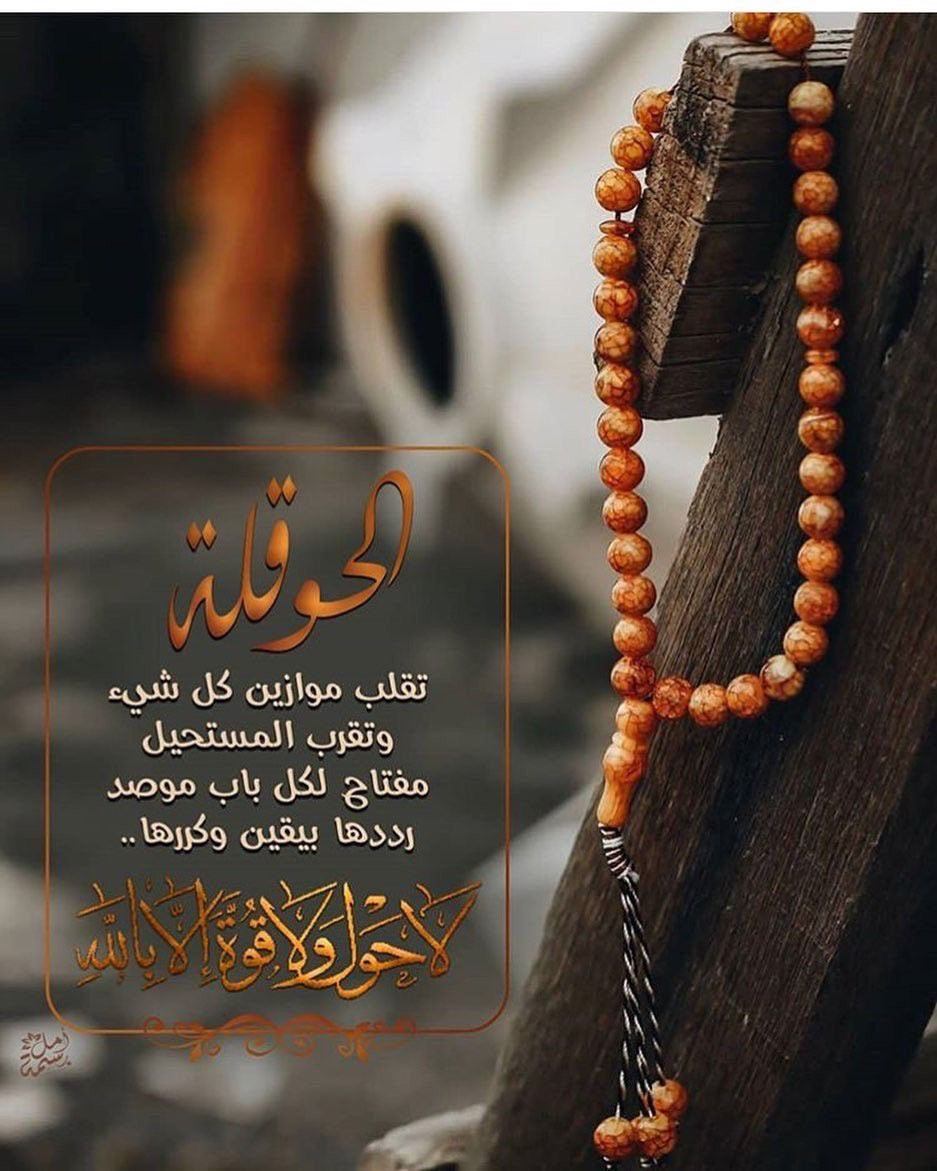 الحوقلة
تقلب موازين كل شيء
وتقرب المستحيل
مفتاح لكل باب موصد
رددها بيقين وكررها..
لَا حَوْلَ وَلَا قُوَّةَ إِلَّا بِاللَّهِ